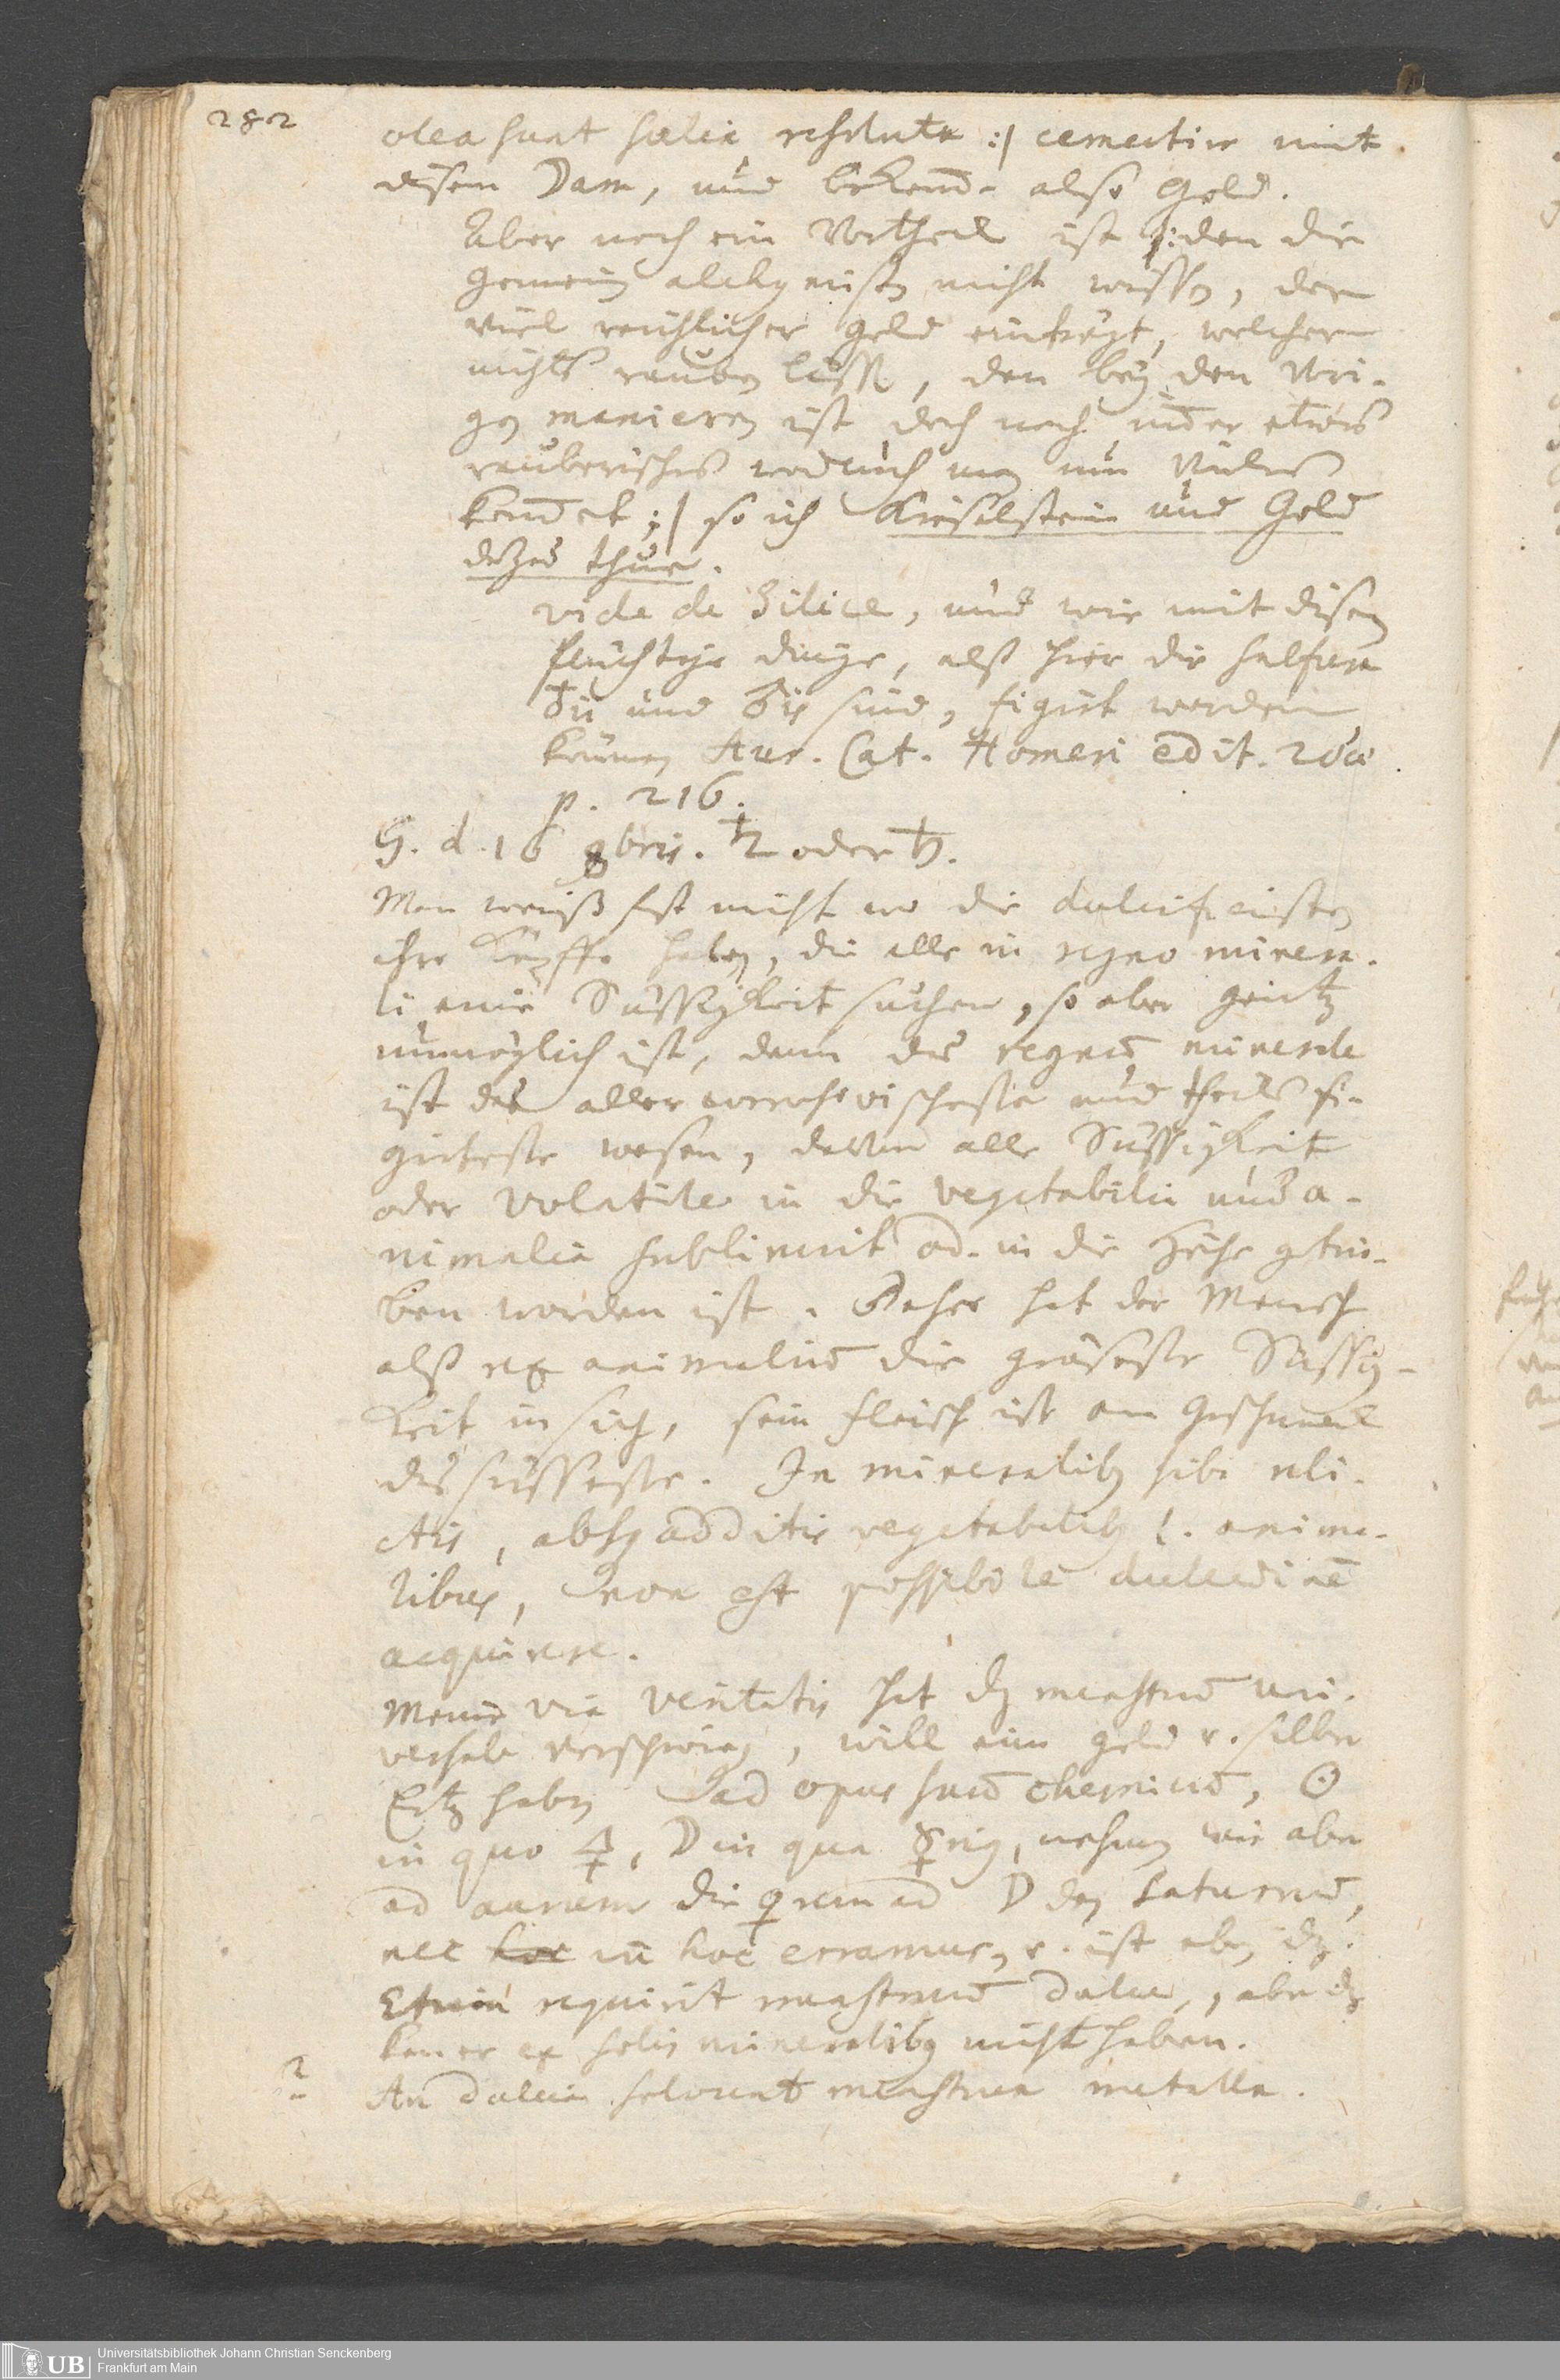 282
olea sunt salia resoluta :/ cementire mit
disem Dam, und bekom̅e also Gold.
Aber noch ein Vortheil ist /: den die
gemeine alchymisten nicht wissen, der
viel reichlicher Gold einträgt, welcher
nichts rauben lässt, den bey den vori-
gen manieren ist doch noch im̅er etwas
rauberisches wodurch man um vieles
kom̅et :/ so ich Kieselstein und Gold
dazu thue.
vide de Silice, und wie mit disen
flüchtige dinge, alß hier die sulfura
♁ii und ♂tis sind, figirt werden
können Aur. Cat. Homeri edit. 2da
p. 216.
H. d. 16 8bris. ♃ oder ♄.
Man weiß fast nicht wo die dulcif
ihre Köpffe haben, die alle in regno minera-
li eine Süssigkeit suchen, so aber gantz
unmöglich ist, denn das regnu̅ minerale
ist das aller corrosivischeste und theils fi-
girteste wesen, darin alle Süssigkeit
oder Volatile in die vegetabilia und a-
nimalia sublimirt od. in die Höhe getrie-
ben worden ist. Daher hat der Mensch
alß rex animaliu̅ die gröseste Süssig-
keit in sich, sein fleisch ist am Geschmack
das süsseste. In mineralibus sibi reli-
ctis, absque additis vegetabilibus l. anima-
libus, non est possibile dulcedine̅
acquirere.
Meine via veritatis hat das menstruu̅ uni-
versale verschwiegen, will nun gold u. silber
Ertz haben ad opus suu̅ chemicu̅, ☉
in quo 🜍, ☽ in qua ☿rius, nehmen wir aber
ad aurum die ♀rem ad ☽ den saturnu̅,
nec hoc in hoc erramus, u. ist eben das.
requirit menstruu̅ dulce, aber das
kan er ex solis mineralibus nicht haben.
2 An dulcia solvant menstrua metalla.
Universitätsbibliothek Johann Christian Senckenberg
Frankfurt am Main
UB